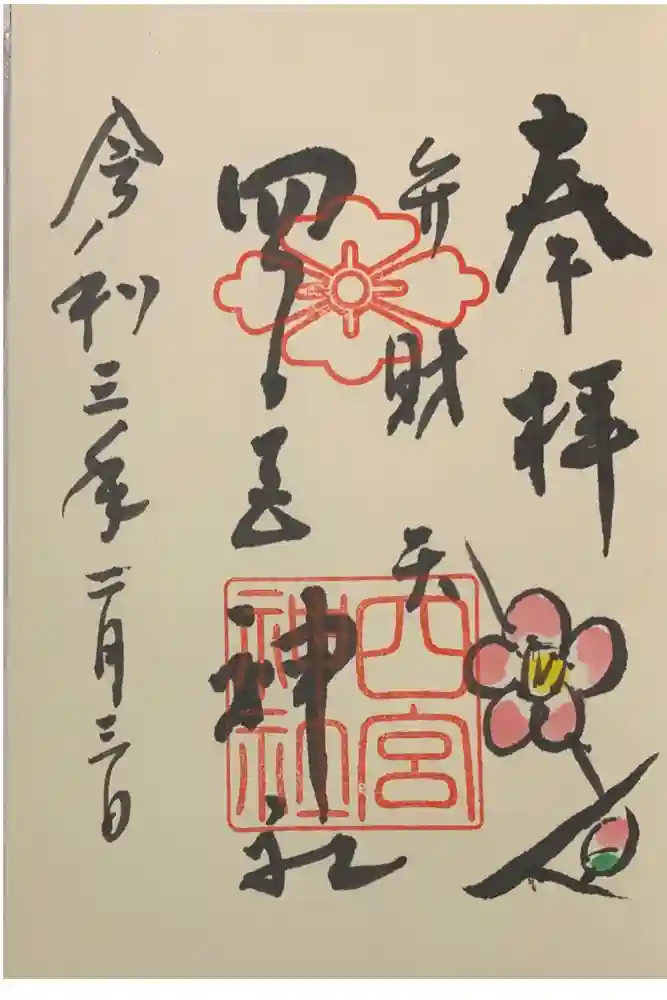 奉拝
弁財天
四宮神社
四宮神社
令和三年二月三日